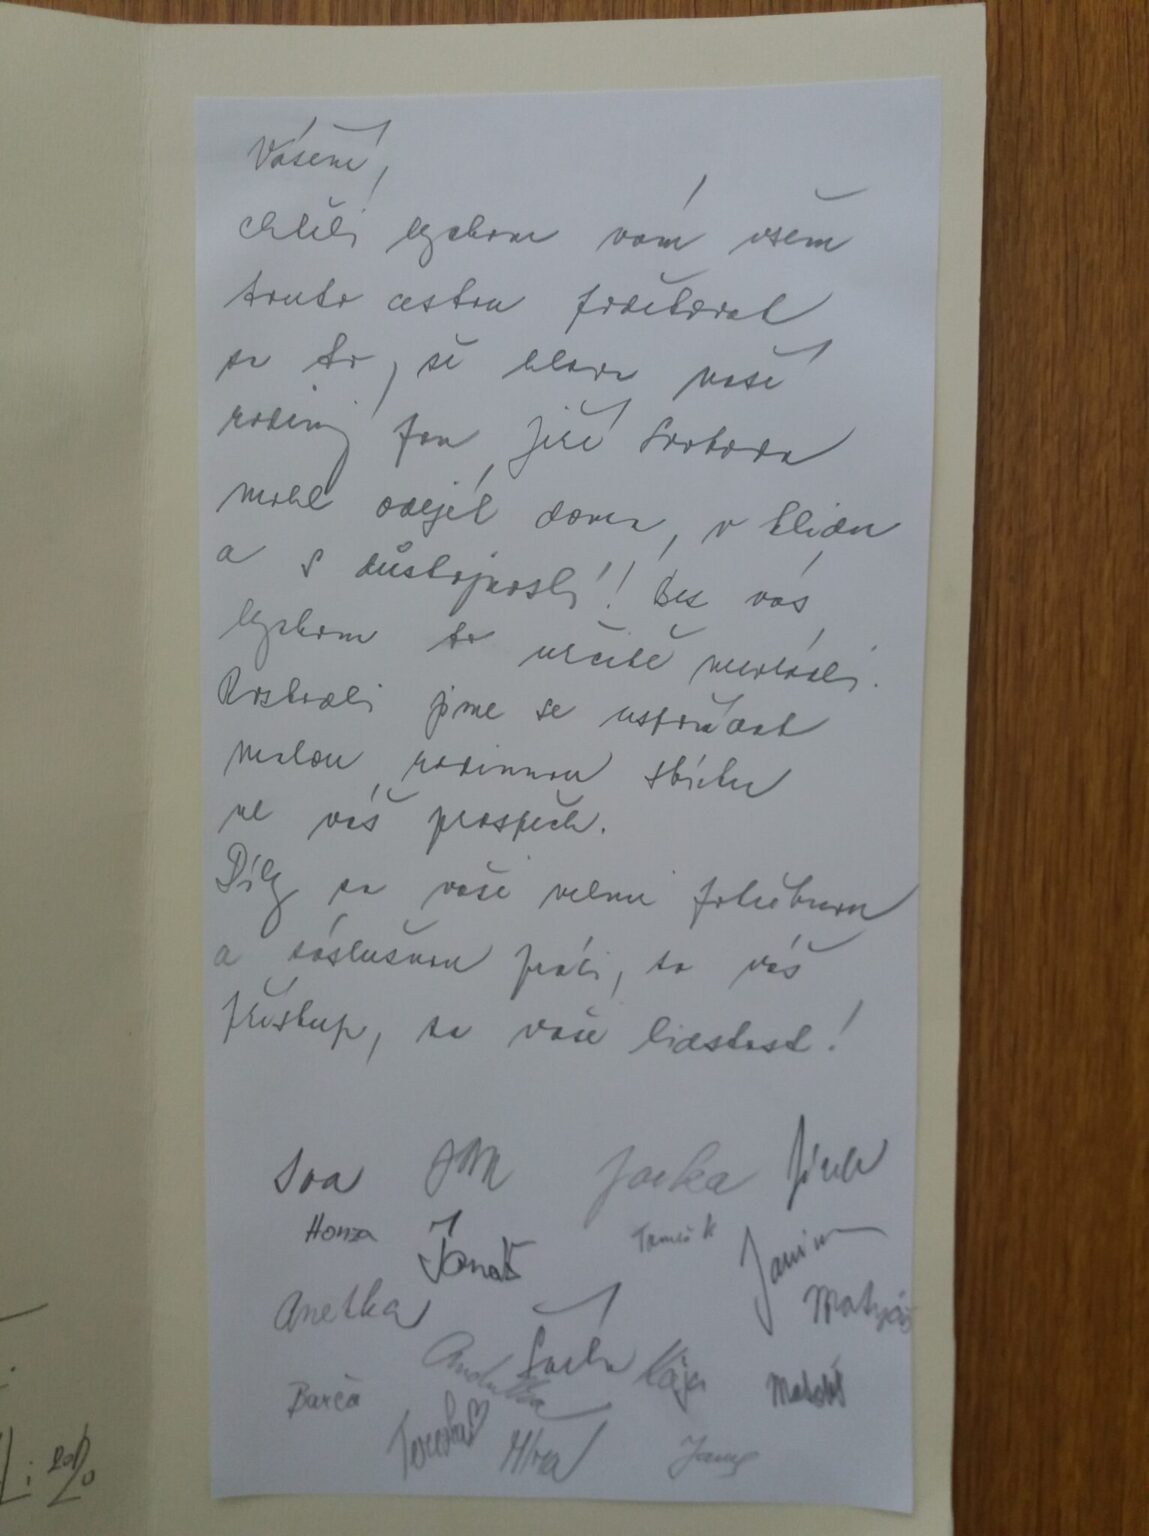 Vážení,
chtěli bychom vám všem
touto cestou poděkovat
za to, že hlava naší
rodiny, pan Jiří Svoboda
mohl odejít doma, v klidu
a s důstojností! Bez vás
bychom to určitě nezvládli.
Rozhodli jsme se uspořádat
malou rodinnou sbírku
ve váš prospěch.
Díky za vaši velmi potřebnou
a záslužnou práci, za váš
přístup, za vaši lidskost!
Iva Jarka
Honza Jonáš Tomáš K
Anetka Matyáš
Šárka Kája
Barča Andulka Matouš
Terezka Míra